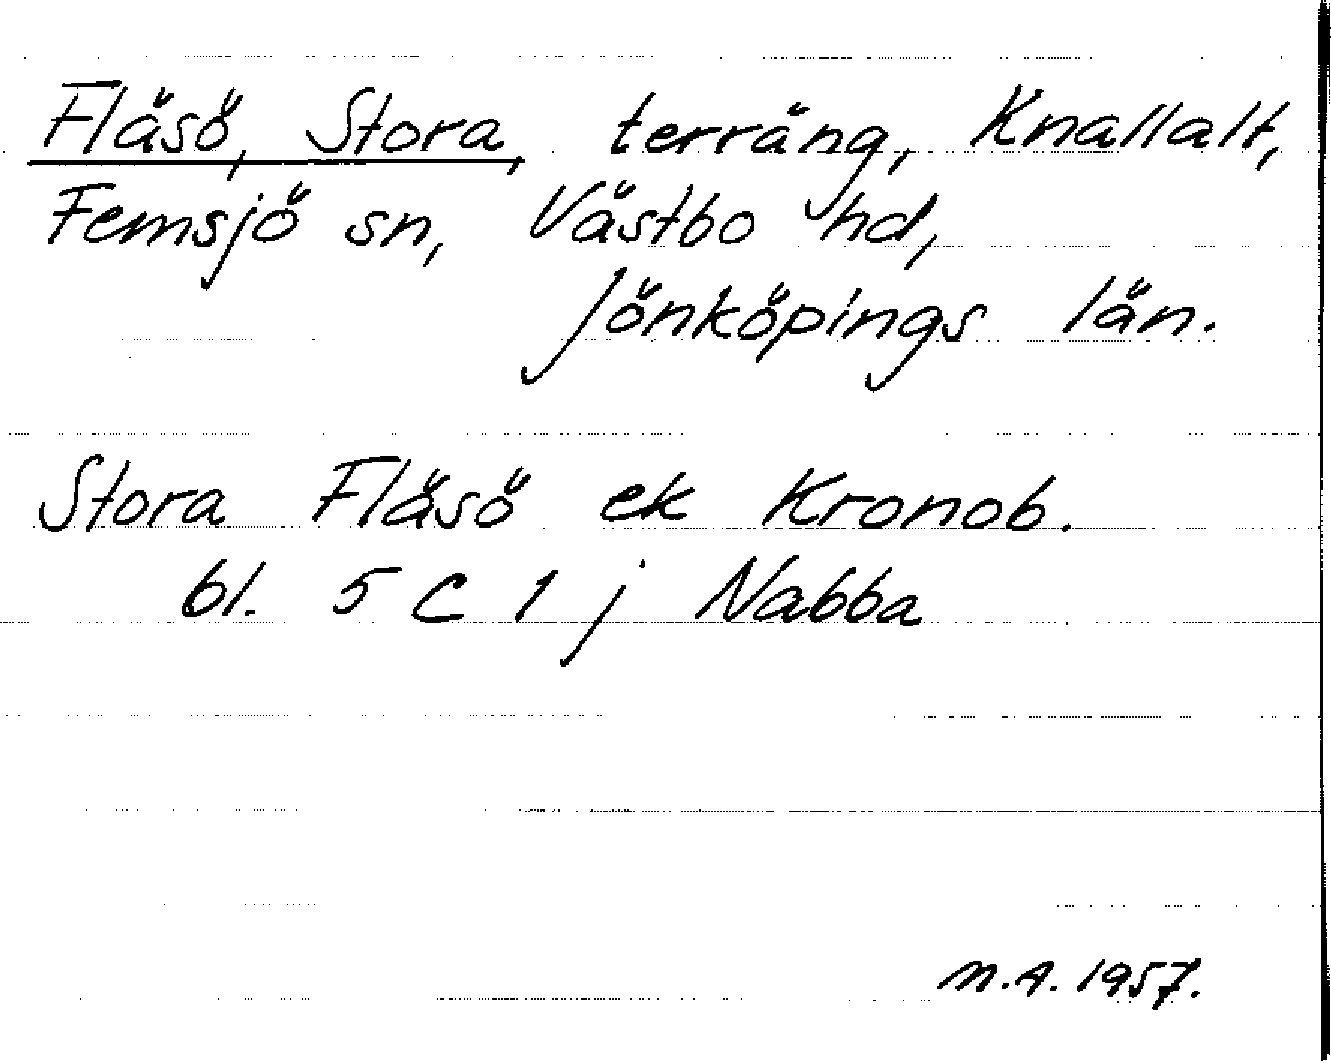 Fläsö, Stora, terräng, Knallalt,
Femsjö sn, Västbo hd,
Jönköpings län.
Stora Fläsö ek Kronob.
bl. 5 C 1 j Nabba
M.A. 1957.